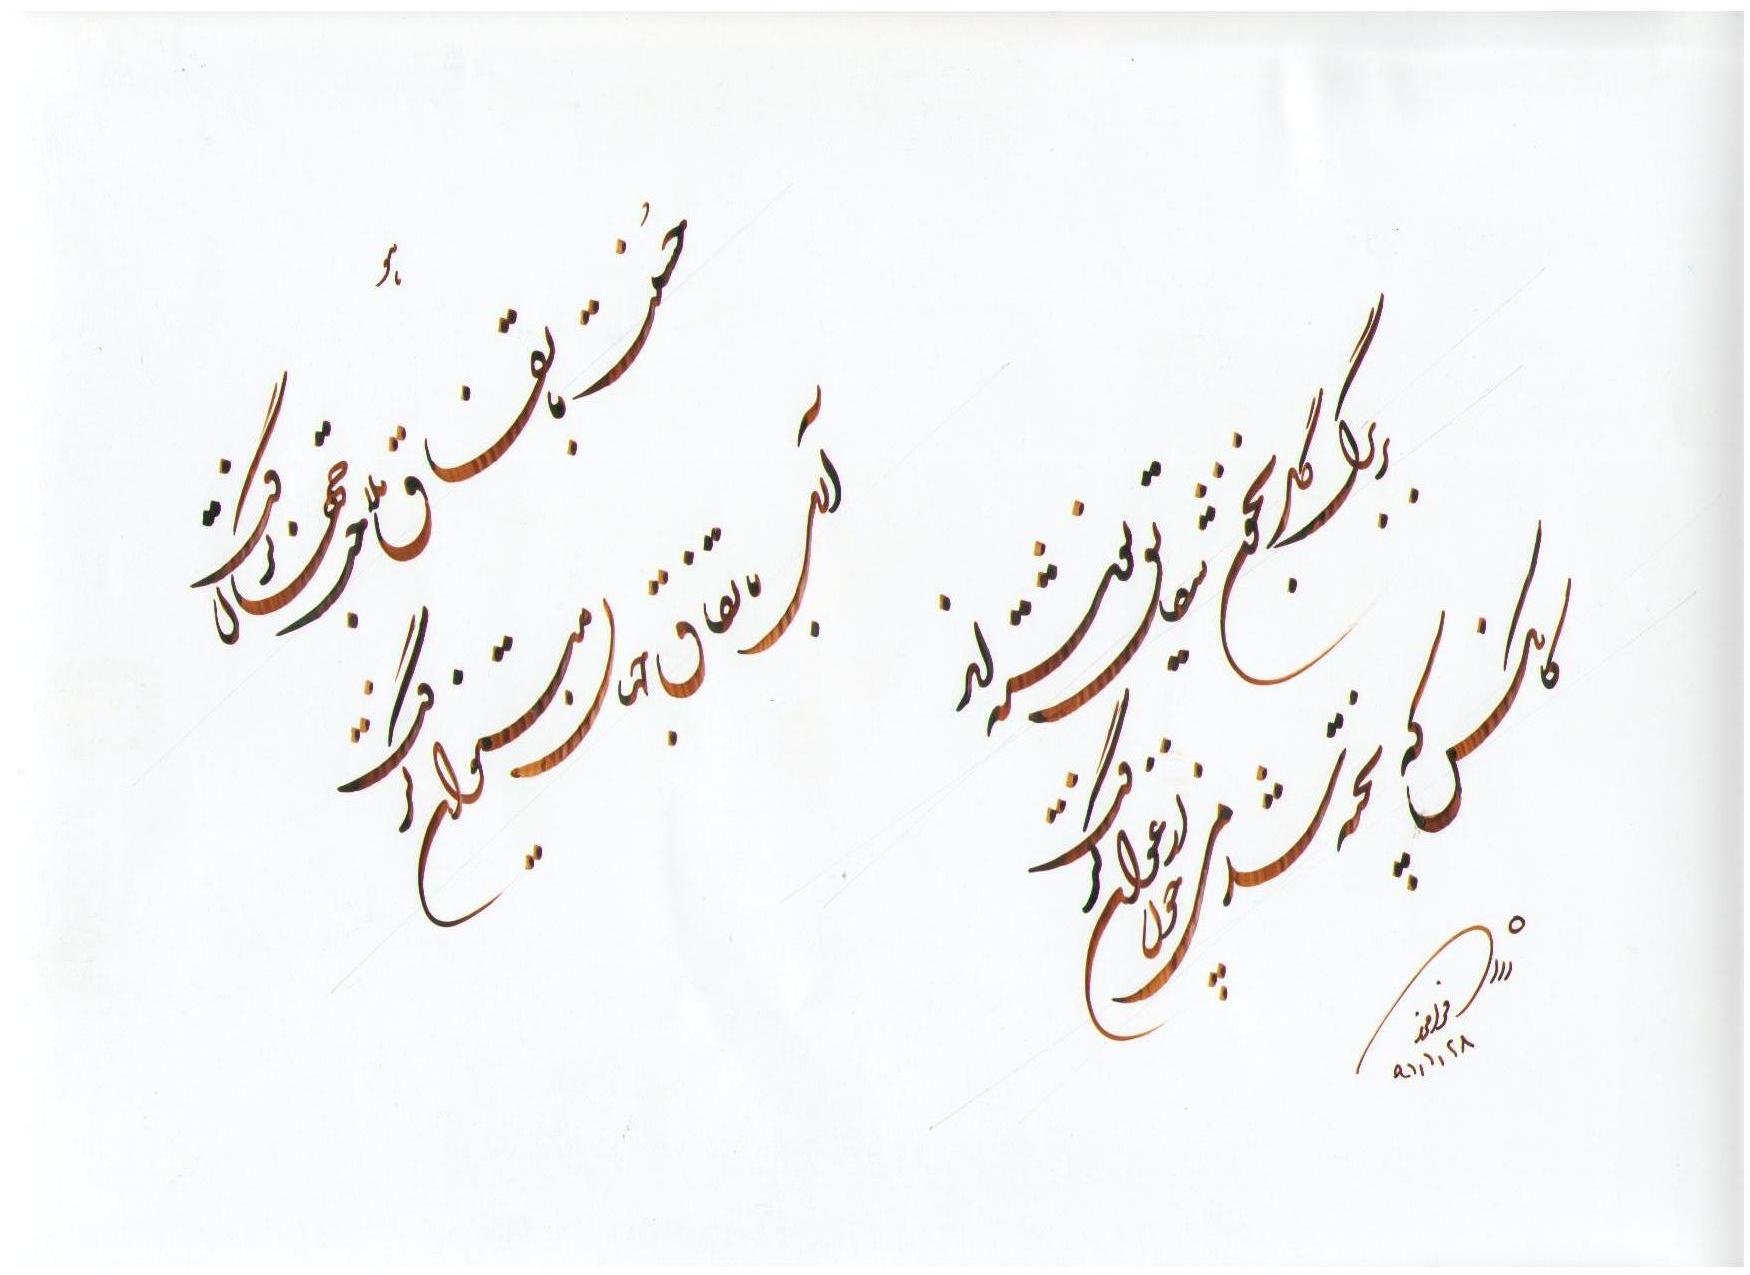 هو
حُسنت باتفاق ملاحت جهان گرفت
آری باتفاق جهان میتوان گرفت
بر برگ گل بخون شقایق نوشته اند
کانکس که پخته شد می چون ارغوان گرفت